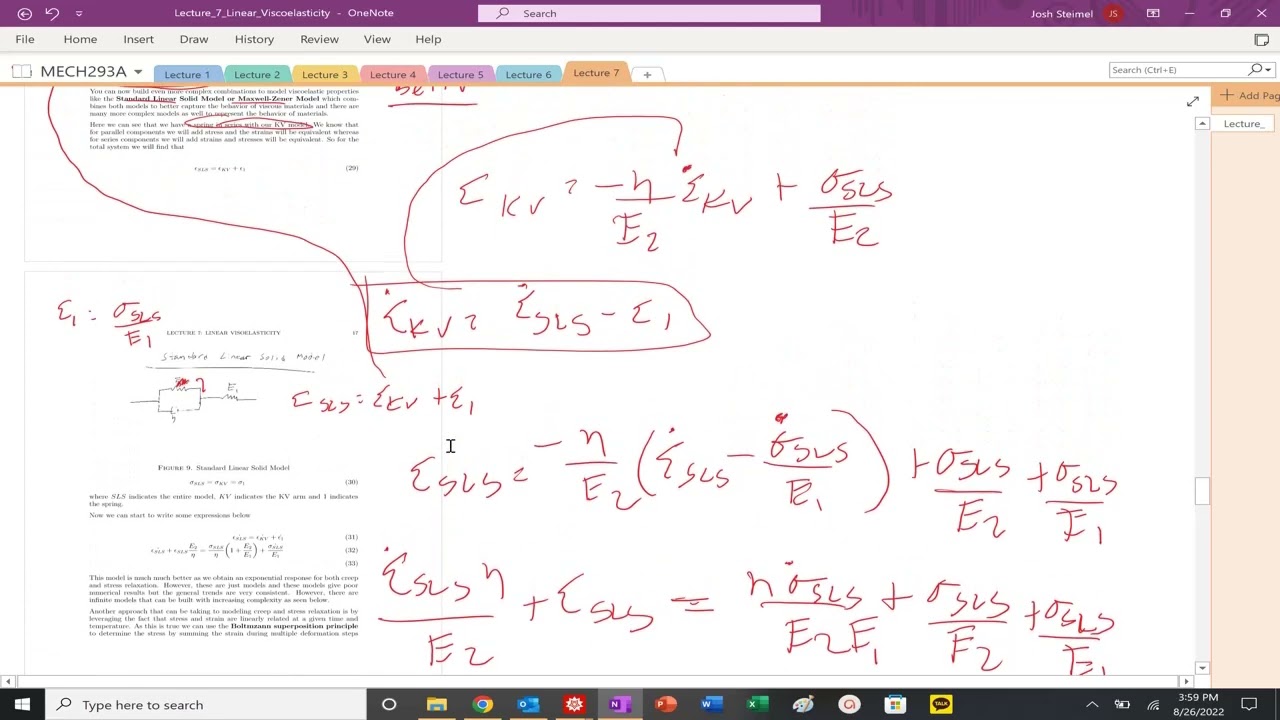 Lecture_7_Linear_Viscoelasticity - OneNote
Search
Josh Steimel
JS
File Home Insert Draw History Review View Help
MECH293A
Lecture 1
Lecture 2
Lecture 3
Lecture 4
Lecture 5
Lecture 6
Lecture 7
Search (Ctrl+E)
Add Pag
Lecture_
You can now build even more complex combinations to model viscoelastic properties
like the Standard Linear Solid Model or Maxwell-Zener Model which com-
bines both models to better capture the behavior of viscous materials and there are
many more complex models as well to represent the behavior of materials.
Here we can see that we have a spring in series with our KV model. We know that
for parallel components we will add stress and the strains will be equivalent whereas
for series components we will add strains and stresses will be equivalent. So for the
total system we will find that
ϵSLS = ϵKV + ϵ1 (29)
εKV = -η/E2 ε̇KV + σSLS/E2
ε̇KV = ε̇SLS - ε̇1
ε1 = σSLS/E1
LECTURE 7: LINEAR VISOELASTICITY 17
Standard Linear Solid Model
E1
η
εSLS = εKV + ε1
εSLS = -η/E2 (ε̇SLS - σ̇SLS/E1) + σSLS/E2 + σSLS/E1
Figure 9. Standard Linear Solid Model
σSLS = σKV = σ1 (30)
where SLS indicates the entire model, KV indicates the KV arm and 1 indicates
the spring.
Now we can start to write some expressions below
ϵ̇SLS = ϵ̇KV + ϵ̇1 (31)
ϵ̇SLS + ϵSLS E2/η = σSLS/η (1 + E2/E1) + σ̇SLS/E1 (32)
(33)
ε̇SLS η/E2 + εSLS = η σ̇SLS/E2E1 + σSLS/E2 + σSLS/E1
This model is much much better as we obtain an exponential response for both creep
and stress relaxation. However, these are just models and these models give poor
numerical results but the general trends are very consistent. However, there are
infinite models that can be built with increasing complexity as seen below.
Another approach that can be taking to modeling creep and stress relaxation is by
leveraging the fact that stress and strain are linearly related at a given time and
temperature. As this is true we can use the Boltzmann superposition principle
to determine the stress by summing the strain during multiple deformation steps
Type here to search
TALK
3:59 PM
8/26/2022